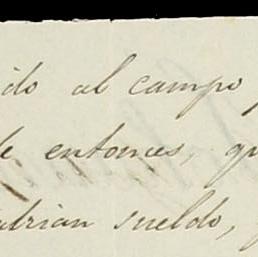 ido al campo
de entonces, qu
adrian sueldo,